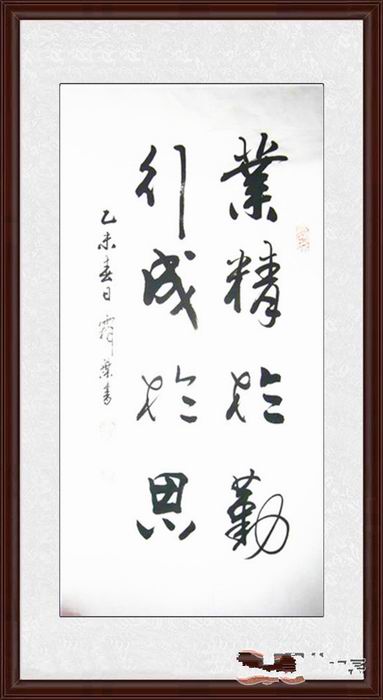 業精於勤
行成於思
乙未春日